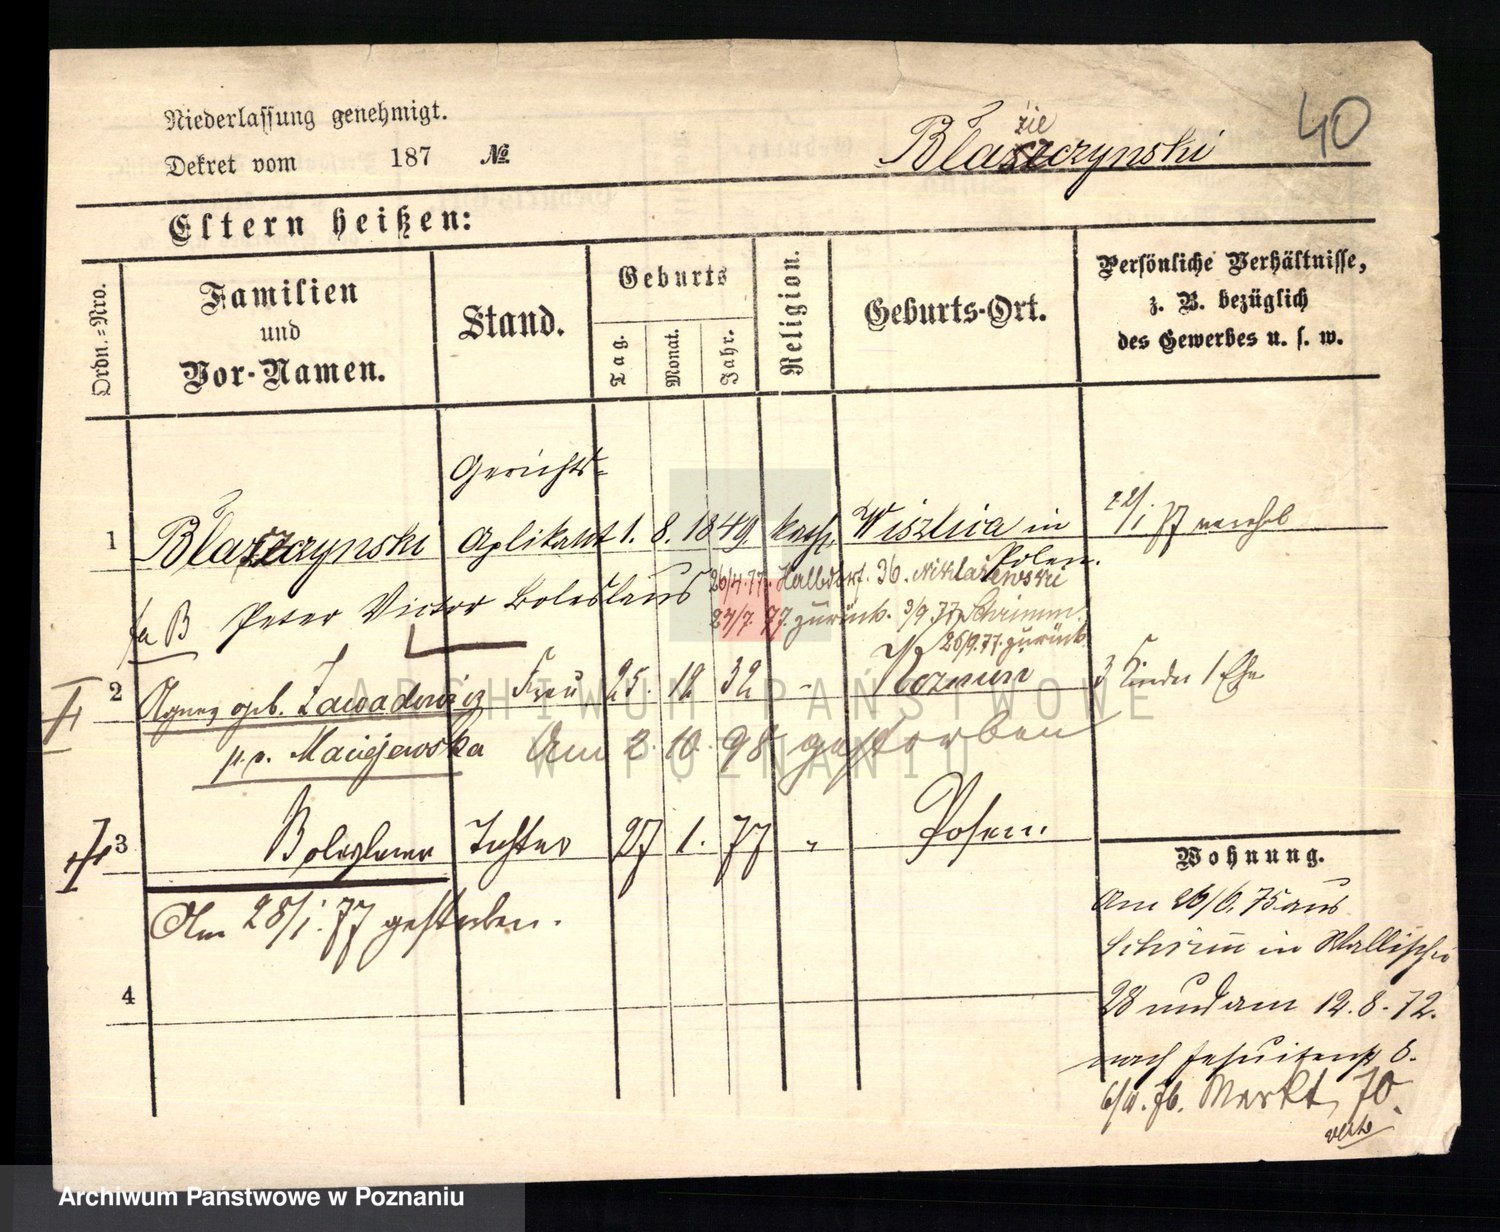 Niederlassung genehmigt.
Dekret vom 187 №
40
zie
Blaszczynski
Eltern heißen:
Ordn.-Nro.
Familien
und
Vor-Namen.
Stand.
Geburts
Tag.
Monat.
Jahr.
Religion.
Geburts-Ort.
Persönliche Verhältnisse,
z. B. bezüglich
des Gewerbes u. s. w.
Gerichts-
1 Blaszczynski Aplikant 1. 8. 1849. kath. Wiszlica in
Polen.
22/1 77 verehl
fa B Peter Victor Boleslaus
26/4.77. Halbdorf. 36. Niklaszewski
24/7. 77. zurück. 3/9 77 Schrimm
25/9.77. zurück
2 Agnes geb. Zawadowicz Frau 25. 12 32 Posen
3 Kinder 1 Ehe
p.v. Maciejewska Am 2. 10. 98 gestorben
3 Boleslawa Tochter 27 1. 77 " Posen.
Am 28/1. 77 gestorben.
4
Wohnung.
Am 26/6. 75 aus
Schrim in Wallischei
28 und am 12. 8. 72.
nach Jesuitenstr 6.
76. Markt 70
verte
ARCHIWUM PAŃSTWOWE
W POZNANIU
Archiwum Państwowe w Poznaniu